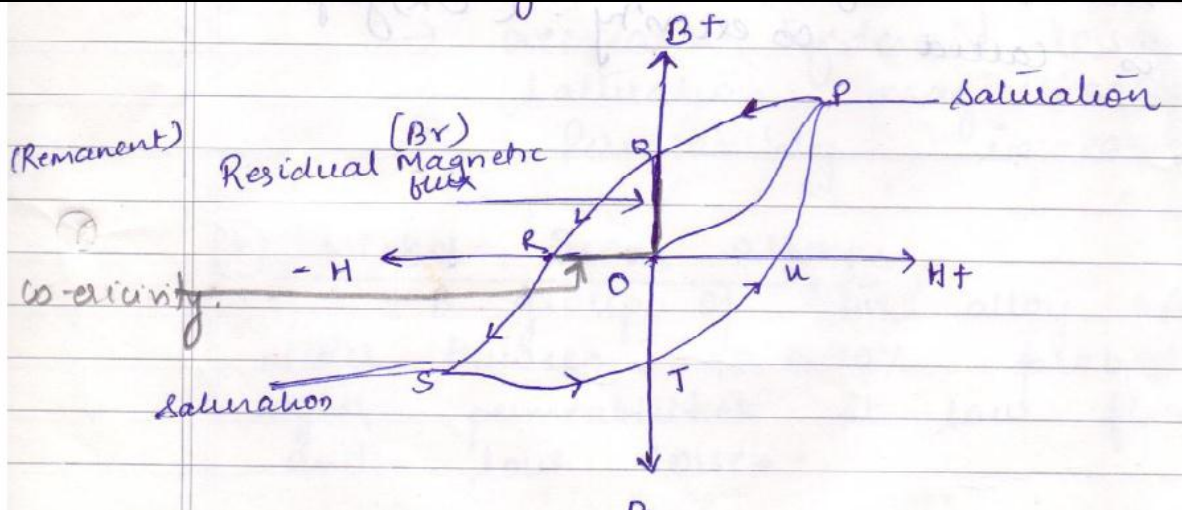 B+
P
Saturation
(Br)
(Remanent)
Residual Magnetic
flux
Q
R
- H
O
u
H+
Co-ericivity.
S
T
Saturation